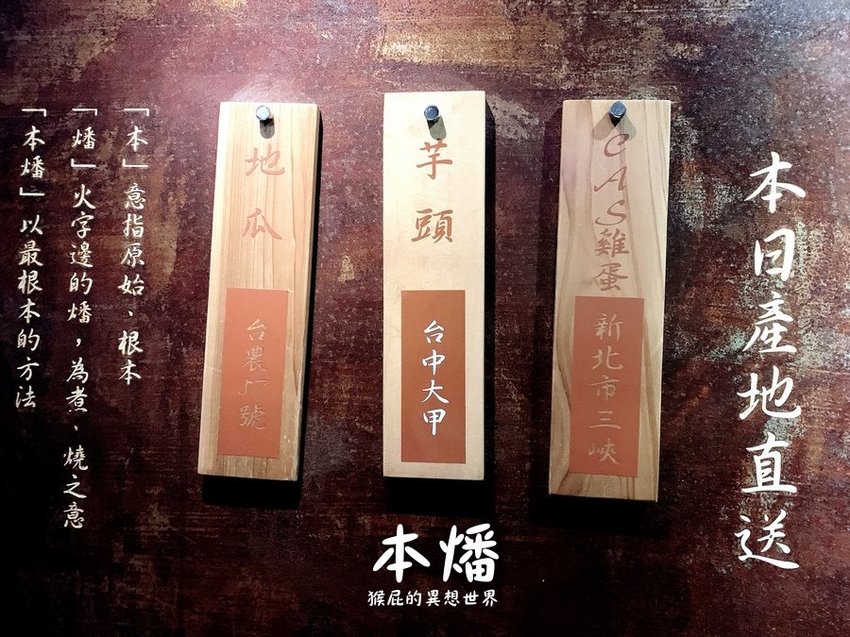 本日產地直送
CAS雞蛋
新北市三峽
芋頭
台中大甲
地瓜
台農57號
「本」意指原始、根本
「燔」火字邊的燔，為煮、燒之意
「本燔」以最根本的方法
本燔
猴屁的異想世界